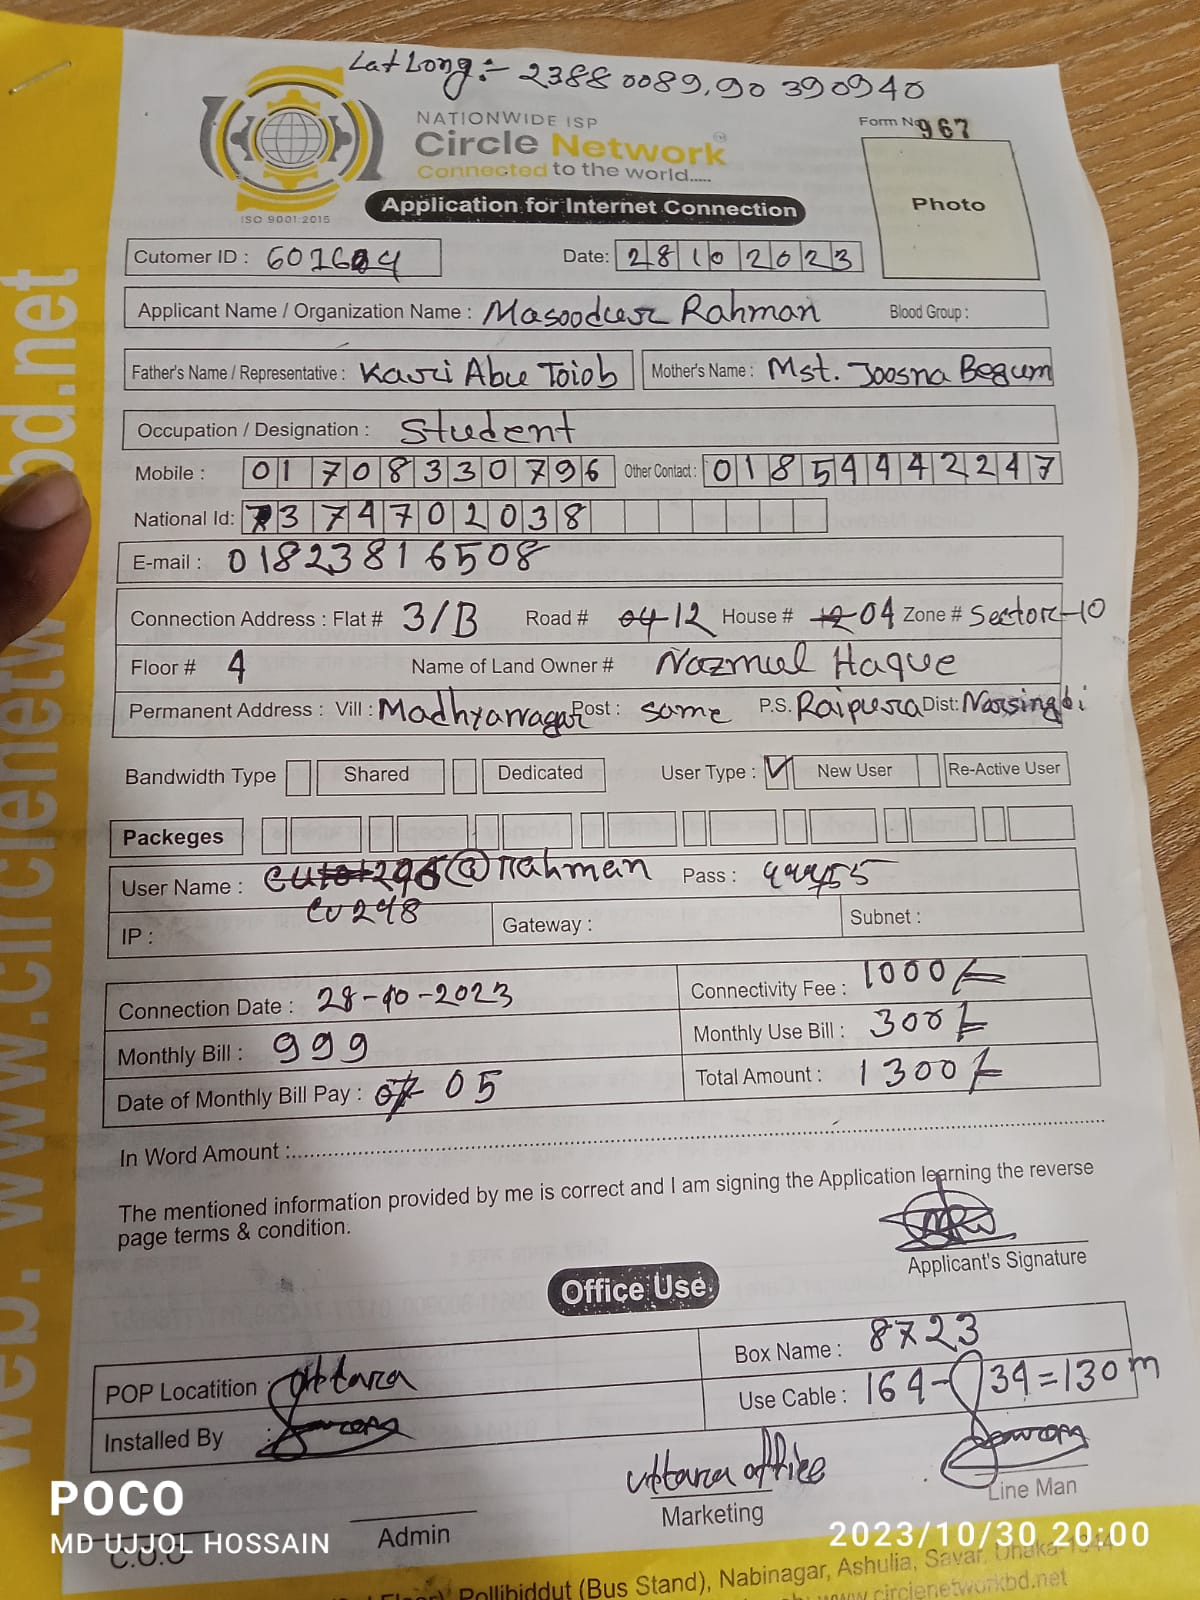 Lat Long:- 2388 0089, 90 390940
NATIONWIDE ISP
Circle Network
Connected to the world.....
ISO 9001:2015
Form No 967
Photo
Application for Internet Connection
Cutomer ID : 601604 Date: 28 10 2023
Applicant Name / Organization Name : Masoodur Rahman Blood Group :
Father's Name / Representative : Kavri Abu Toiob Mother's Name : Mst. Joosna Begum
Occupation / Designation : Student
Mobile : 01708330796 Other Contact : 01854442247
National Id: 7374702038
E-mail : 01823816508
Connection Address : Flat # 3/B Road # 04 12 House # 12 04 Zone # Sector-10
Floor # 4 Name of Land Owner # Nazmul Haque
Permanent Address : Vill : Madhyanagar Post : same P.S. Raipura Dist: Narsingdi
Bandwidth Type Shared Dedicated User Type : ✓ New User Re-Active User
Packeges
User Name : @rahman Pass : 44455
cu248
IP : Gateway : Subnet :
Connection Date : 28-10-2023 Connectivity Fee : 1000/-
Monthly Bill : 999 Monthly Use Bill : 300/-
Date of Monthly Bill Pay : 07 05 Total Amount : 1300/-
In Word Amount :
The mentioned information provided by me is correct and I am signing the Application learning the reverse
page terms & condition.
Applicant's Signature
Office Use.
POP Locatition : Uttara Box Name : 8723
Installed By Use Cable : 164-34=130m
Uttara office
Marketing
Line Man
Admin
C.O.O
POCO
MD UJJOL HOSSAIN
2023/10/30 20:00
Pollibiddut (Bus Stand), Nabinagar, Ashulia, Savar, Dhaka-1344
www.circlenetworkbd.net
web. www.circlenetworkbd.net